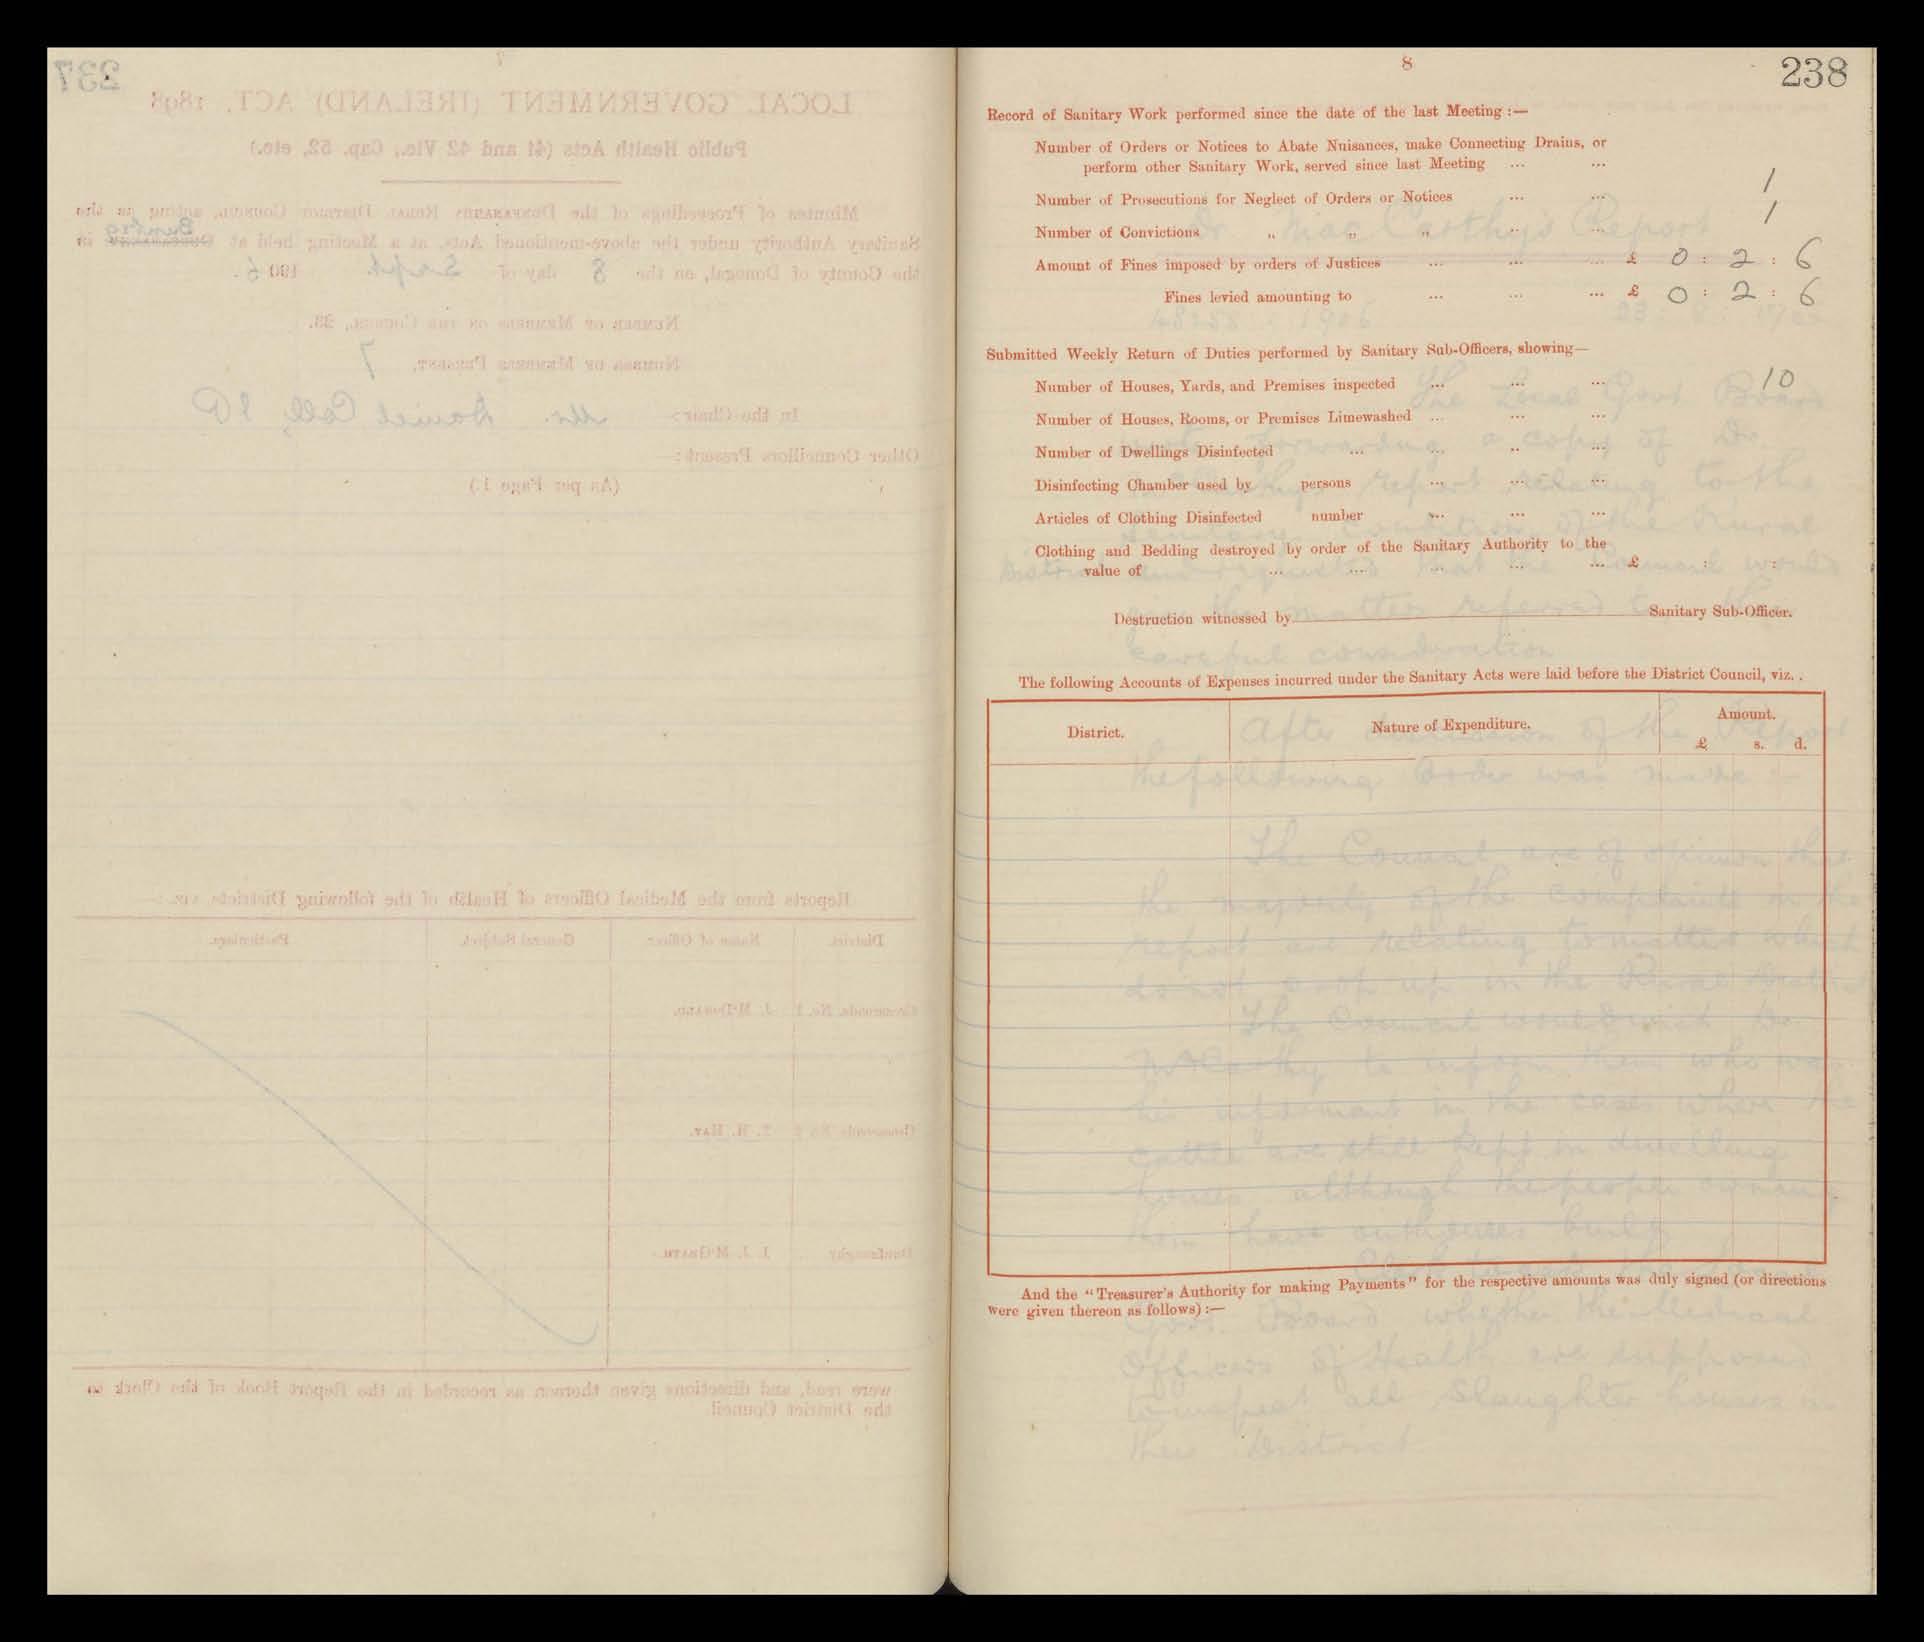 237
7
LOCAL GOVERNMENT (IRELAND) ACT, 1898
Public Health Acts (41 and 42 Vic., Cap. 52, etc.)
Minutes of Proceedings of the Dunfanaghy Rural District Council, acting as the
Sanitary Authority under the above-mentioned Acts, at a Meeting held at Bunbeg in
the County of Donegal, on the 8 day of Sept. 1906.
Number of Members on the Council, 23.
Number of Members Present, 7
In the Chair:— Mr. Daniel Coll, J P
Other Councillors Present:—
(As per Page 1.)
Reports from the Medical Officers of Health of the following Districts, viz.:—
District. Name of Officer. General Subject. Particulars.
Crossroads, No. 1 J. M'Donagh.
Crossroads, No. 2 T. H. Hay.
Dunfanaghy J. J. M'Grath.
were read, and directions given thereon as recorded in the Report Book of the Clerk to
the District Council.
8
238
Record of Sanitary Work performed since the date of the last Meeting :—
Number of Orders or Notices to Abate Nuisances, make Connecting Drains, or
perform other Sanitary Work, served since last Meeting ... ...
Number of Prosecutions for Neglect of Orders or Notices ... ... 1
Number of Convictions „ „ „ ... ... 1
Amount of Fines imposed by orders of Justices ... ... ... £ 0 : 2 : 6
Fines levied amounting to ... ... ... £ 0 : 2 : 6
Submitted Weekly Return of Duties performed by Sanitary Sub-Officers, showing—
Number of Houses, Yards, and Premises inspected ... ... ... 10
Number of Houses, Rooms, or Premises Limewashed ... ... ...
Number of Dwellings Disinfected ... ... ... ...
Disinfecting Chamber used by persons ... ... ...
Articles of Clothing Disinfected number ... ... ...
Clothing and Bedding destroyed by order of the Sanitary Authority to the
value of ... ... ... ... ... £ : :
Destruction witnessed by Sanitary Sub-Officer.
The following Accounts of Expenses incurred under the Sanitary Acts were laid before the District Council, viz. .
District. Nature of Expenditure. Amount.
£ s. d.
And the "Treasurer's Authority for making Payments" for the respective amounts was duly signed (or directions
were given thereon as follows) :—
Dr. MacCarthy's Report
The Local Govt Board
forwarding a copy of Dr.
report relating to the
condition of the Rural
District and requested that the Council would
the matter referred to
careful consideration
After discussion of the Report
the following Order was made :—
The Council are of opinion that
the majority of the complaints in the
report are relating to matters which
do not crop up in the Rural District
The Council would wish Dr.
McCarthy to inform them who was
his informant in the cases where the
cattle are still kept in dwelling
houses although the people owning
them have outhouses built
Govt. Board whether the Medical
Officers of Health are supposed
to inspect all Slaughter houses in
their District